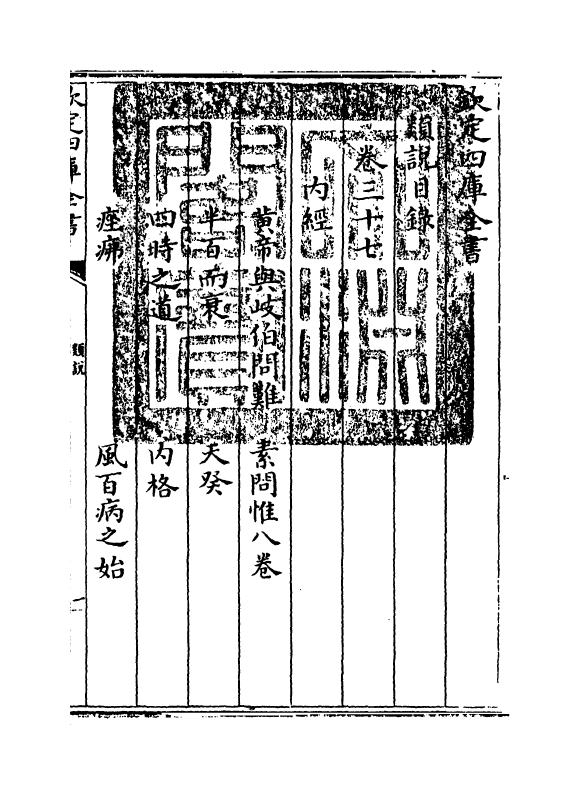 欽定四庫全書
類說目錄
卷三十七
內經
黄帝與岐伯問難 素問惟八卷
半百而衰 天癸
四時之道 内格
痤疿 風百病之始
欽定四庫全書
類說